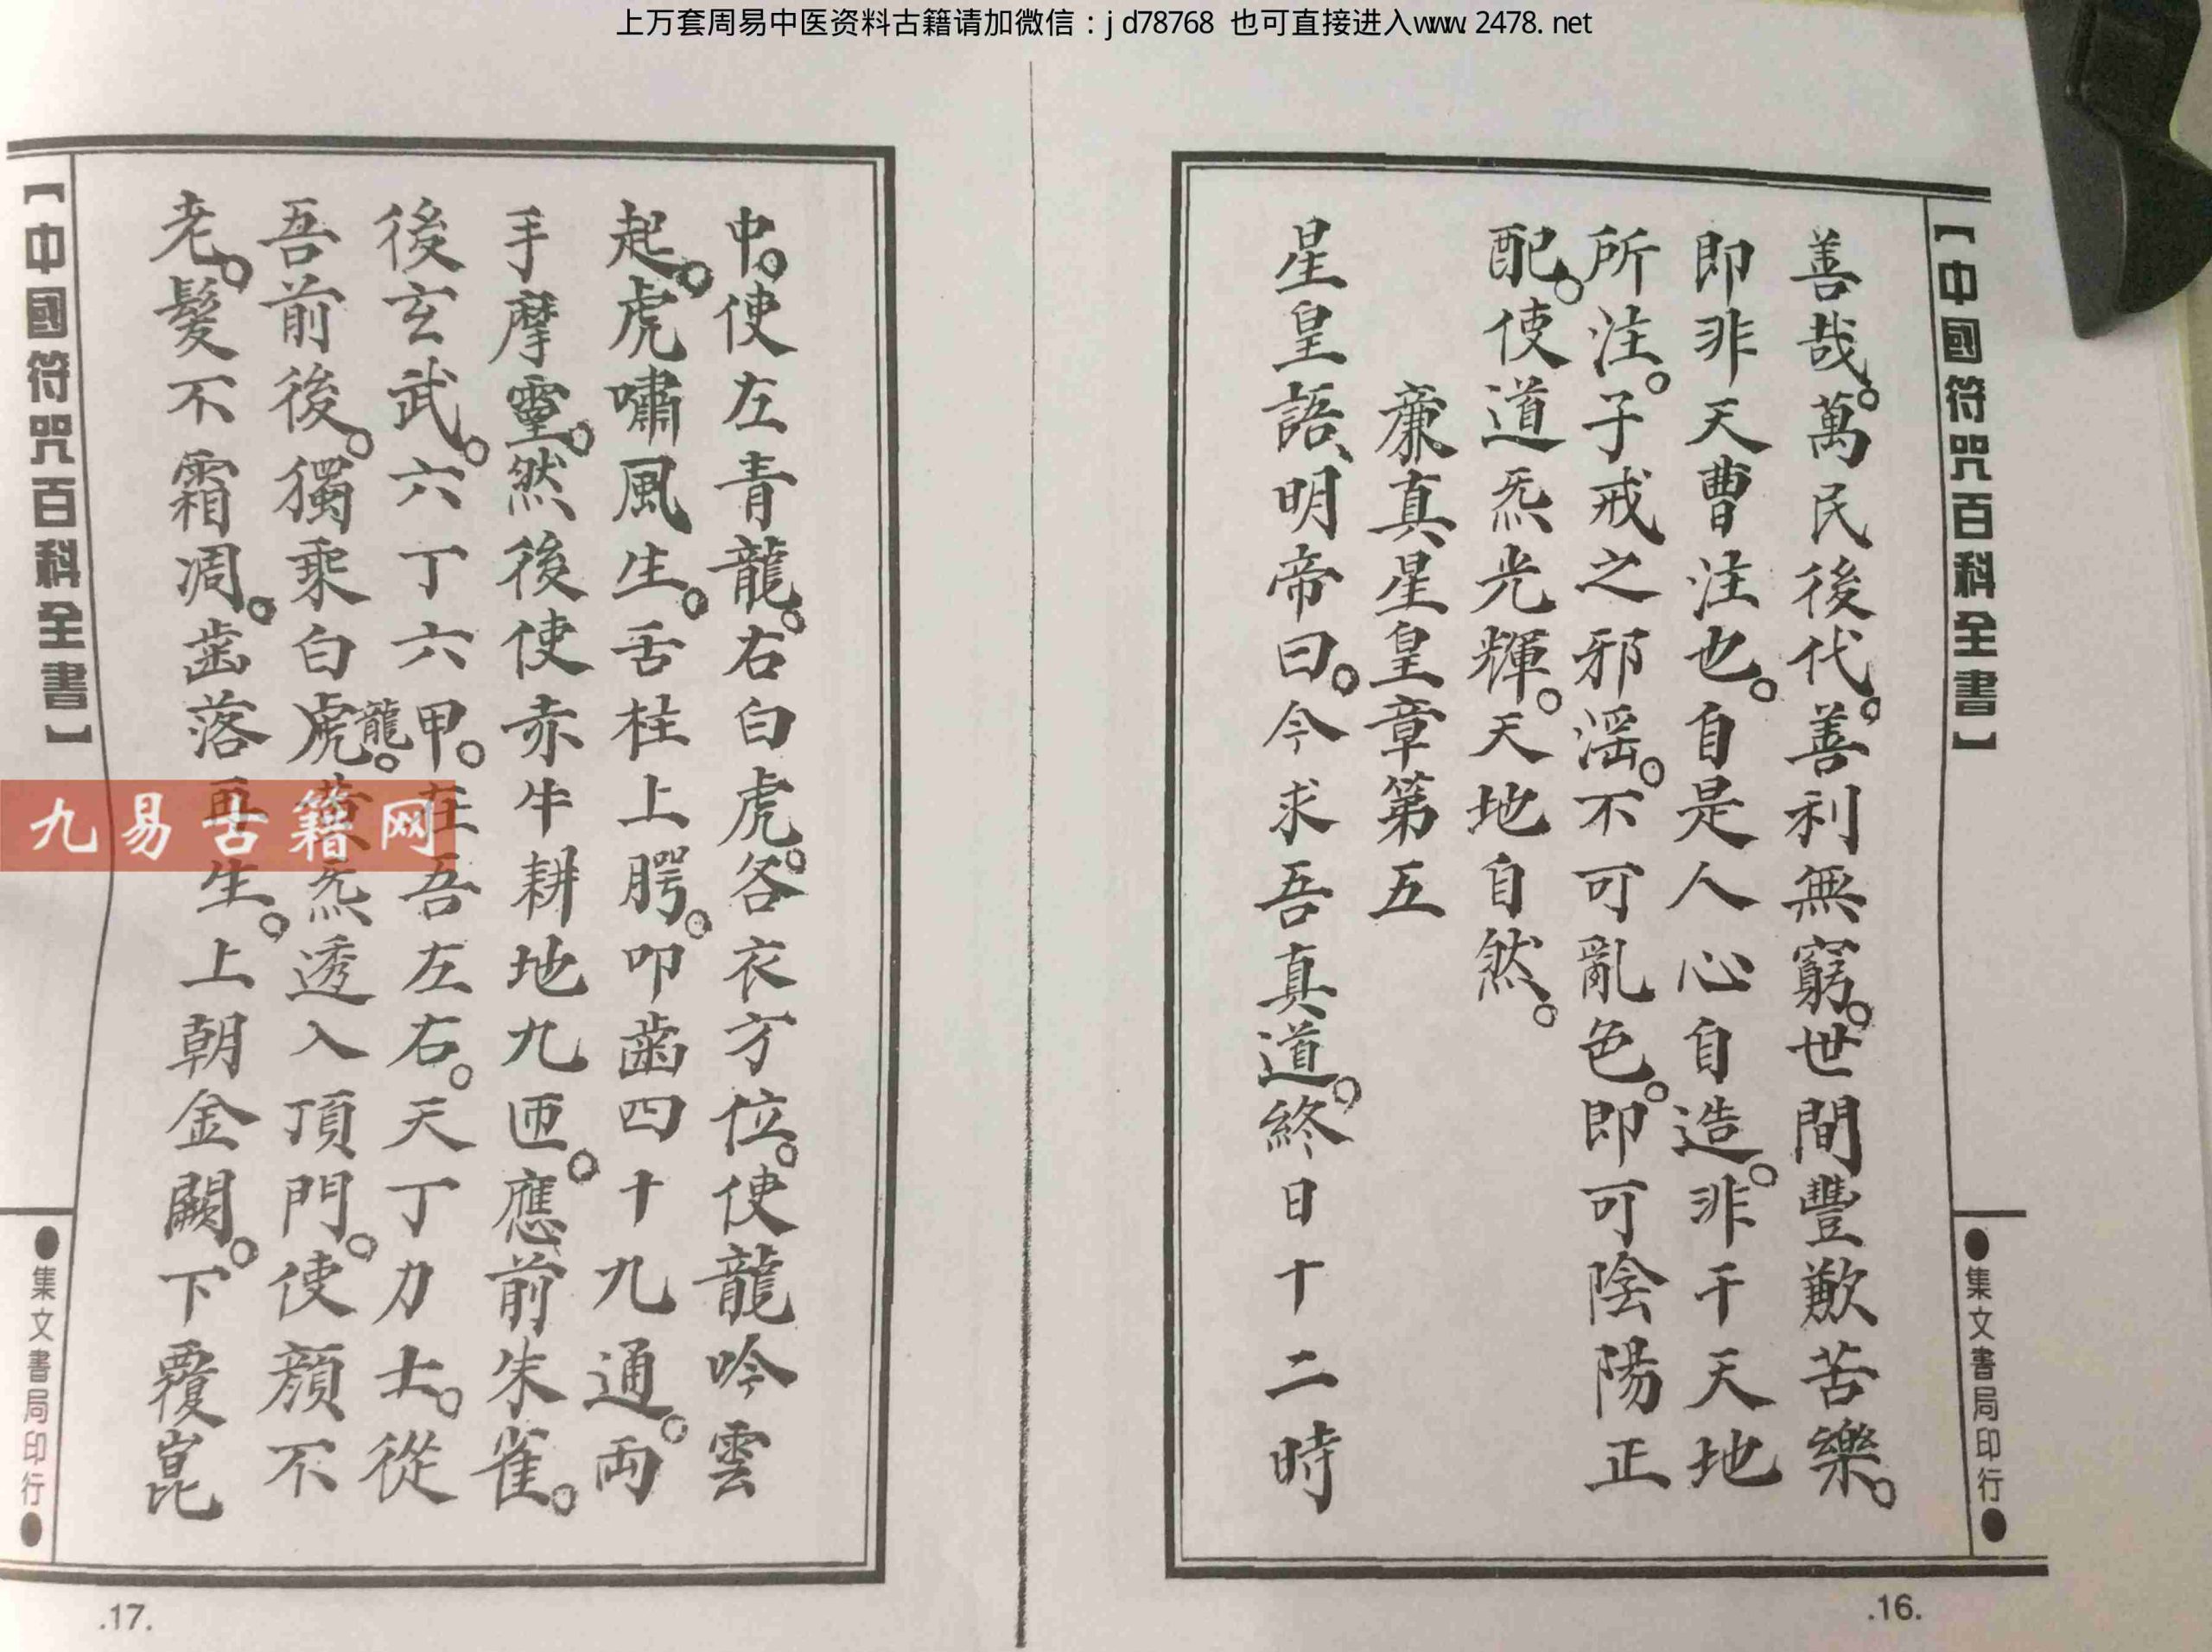 上万套周易中医资料古籍请加微信：jd78768 也可直接进入www.2478.net
【中國符咒百科全書】
●集文書局印行●
善哉。萬民後代。善利無窮。世間豐歉苦樂。
即非天曹注也。自是人心自造。非干天地
所注。子戒之邪滛。不可亂色。即可陰陽正
配。使道炁光輝。天地自然。
亷真星皇章第五
星皇語、明帝曰。今求吾真道。終日十二時
.16.
中。使左青龍。右白虎。各衣方位。使龍吟雲
起。虎嘯風生。舌柱上腭。叩齒四十九通。両
手摩。然後使赤牛耕地九匝。應前朱雀。
後玄武。六丁六甲。在吾左右。天丁力士。從
吾前後。獨乘白虎龍。炁透入頂門。使顔不
老。髮不霜凋。齒落再生。上朝金闕。下覆崑
【中國符咒百科全書】
●集文書局印行●
.17.
九易古籍网